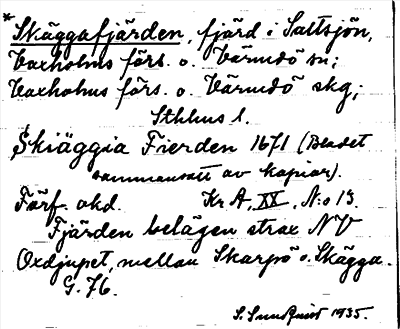 *Skäggafjärden, fjärd i Saltsjön,
Vaxholms förs. o. Värmdö sn;
Vaxholms förs. o. Värmdö skg;
Sthlms l.
Skiäggia Fierden 1671 (Bladet
sammansatt av kopior).
Förf. okd. Kr A, XX, N:o 13.
Fjärden belägen strax NV
Oxdjupet, mellan Skarpö o. Skägga.
G. 76.
S. Sundquist 1935.